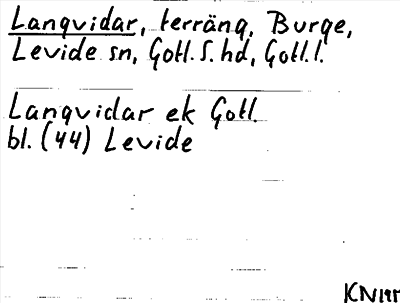 Langvidar, terräng, Burge,
Levide sn, Gotl. S. hd, Gotl. l.
Langvidar ek Gotl.
bl. (44) Levide